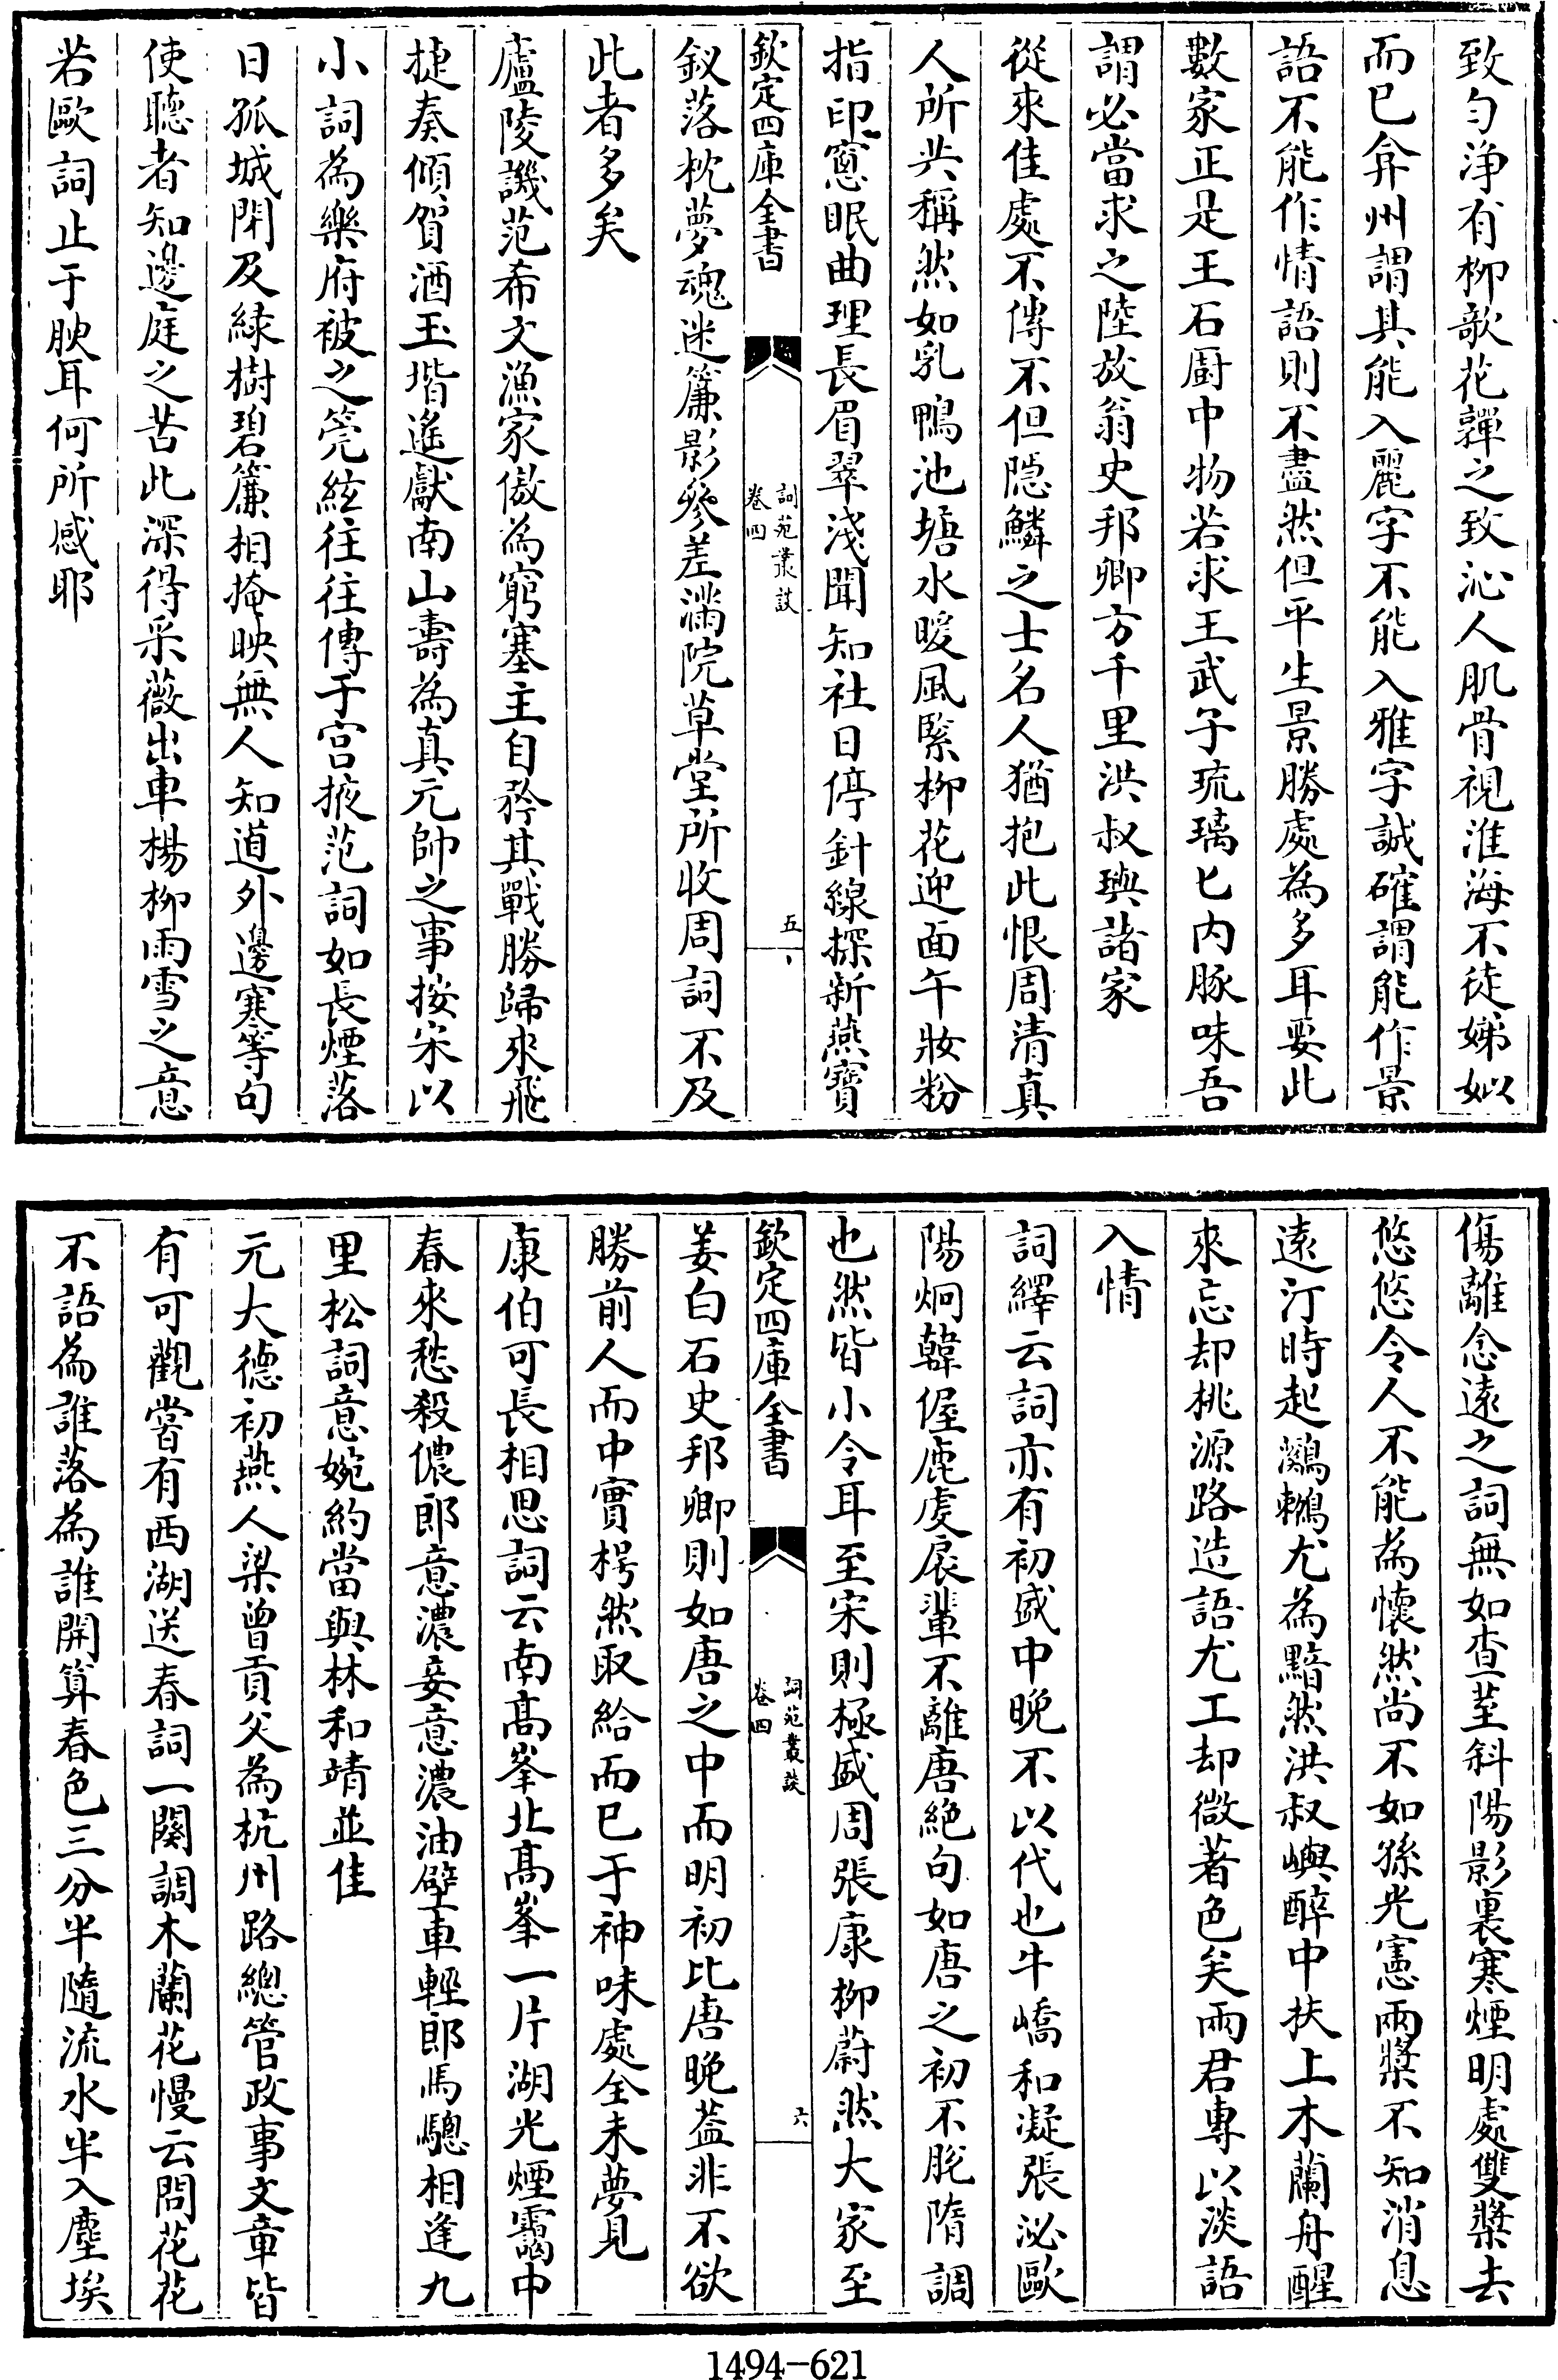 致勻淨有柳欹花嚲之致沁人肌骨視淮海不徒娣姒
而已弇州謂其能入麗字不能入雅字誠確謂能作景
語不能作情語則不盡然但平生景勝處為多耳要此
數家正是王石厨中物若求王武子琉璃匕内豚味吾
謂必當求之陸放翁史邦卿方千里洪叔璵諸家
從來佳處不傳不但隠鱗之士名人猶抱此恨周清真
人所共稱然如乳鴨池塘水暖風緊柳花迎面午妝粉
指印窻眠曲理長眉翠淺聞知社日停針線探新燕寳
欽定四庫全書
詞苑叢談
卷四
五
釵落枕夢魂迷簾影參差滿院草堂所收周詞不及
此者多矣
廬陵譏范希文漁家傲為窮塞主自矜其戰勝歸來飛
捷奏傾賀酒玉堦遙獻南山壽為真元帥之事按宋以
小詞為樂府被之筦絃往往傳于宫掖范詞如長煙落
日孤城閉及緑樹碧簾相掩映無人知道外邊寒等句
使聽者知邊庭之苦此深得采薇出車楊柳雨雪之意
若歐詞止于腴耳何所感耶
傷離念遠之詞無如查荎斜陽影裏寒煙明處雙槳去
悠悠令人不能為懐然尚不如孫光憲兩槳不知消息
遠汀時起鸂鶒尤為黯然洪叔嶼醉中扶上木蘭舟醒
來忘却桃源路造語尤工却微著色矣兩君專以淡語
入情
詞繹云詞亦有初盛中晚不以代也牛嶠和凝張泌歐
陽炯韓偓鹿虔扆輩不離唐絶句如唐之初不脫隋調
也然皆小令耳至宋則極盛周張康柳蔚然大家至
欽定四庫全書
詞苑叢談
卷四
六
姜白石史邦卿則如唐之中而明初比唐晚葢非不欲
勝前人而中實枵然取給而已于神味處全未夢見
康伯可長相思詞云南髙峯北髙峯一片湖光煙靄中
春來愁殺儂郎意濃妾意濃油壁車輕郎馬驄相逢九
里松詞意婉約當與林和靖並佳
元大德初燕人梁曾貢父為杭州路總管政事文章皆
有可觀嘗有西湖送春詞一闋調木蘭花慢云問花花
不語為誰落為誰開算春色三分半隨流水半入塵埃
1494-621